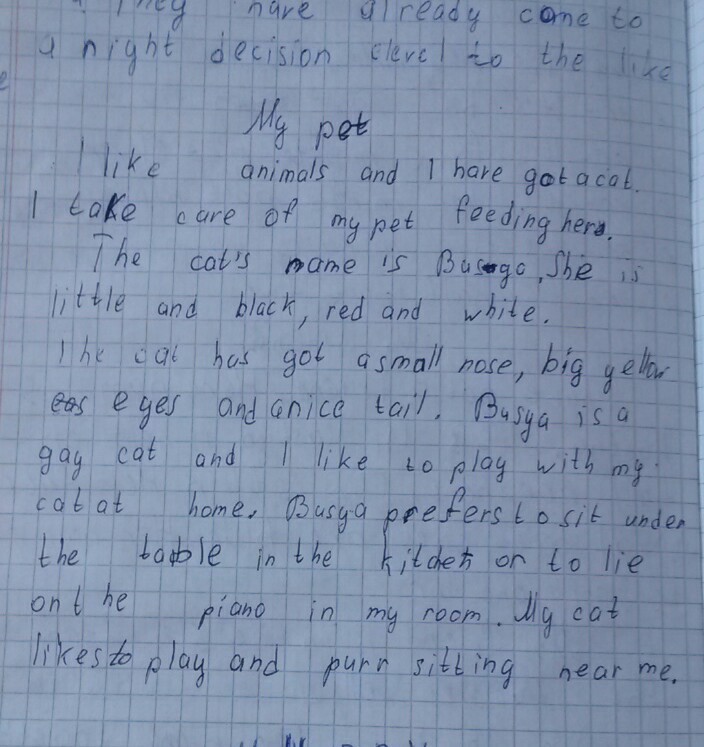 They have already come to
a right decision clevel to the like
My pet
I like animals and I have got a cat.
I take care of my pet feeding her.
The cat's name is Busya, She is
little and black, red and white.
The cat has got a small nose, big yellow
eyes and a nice tail. Busya is a
gay cat and I like to play with my
cat at home. Busya prefers to sit under
the table in the kitchen or to lie
on the piano in my room. My cat
likes to play and purr sitting near me.